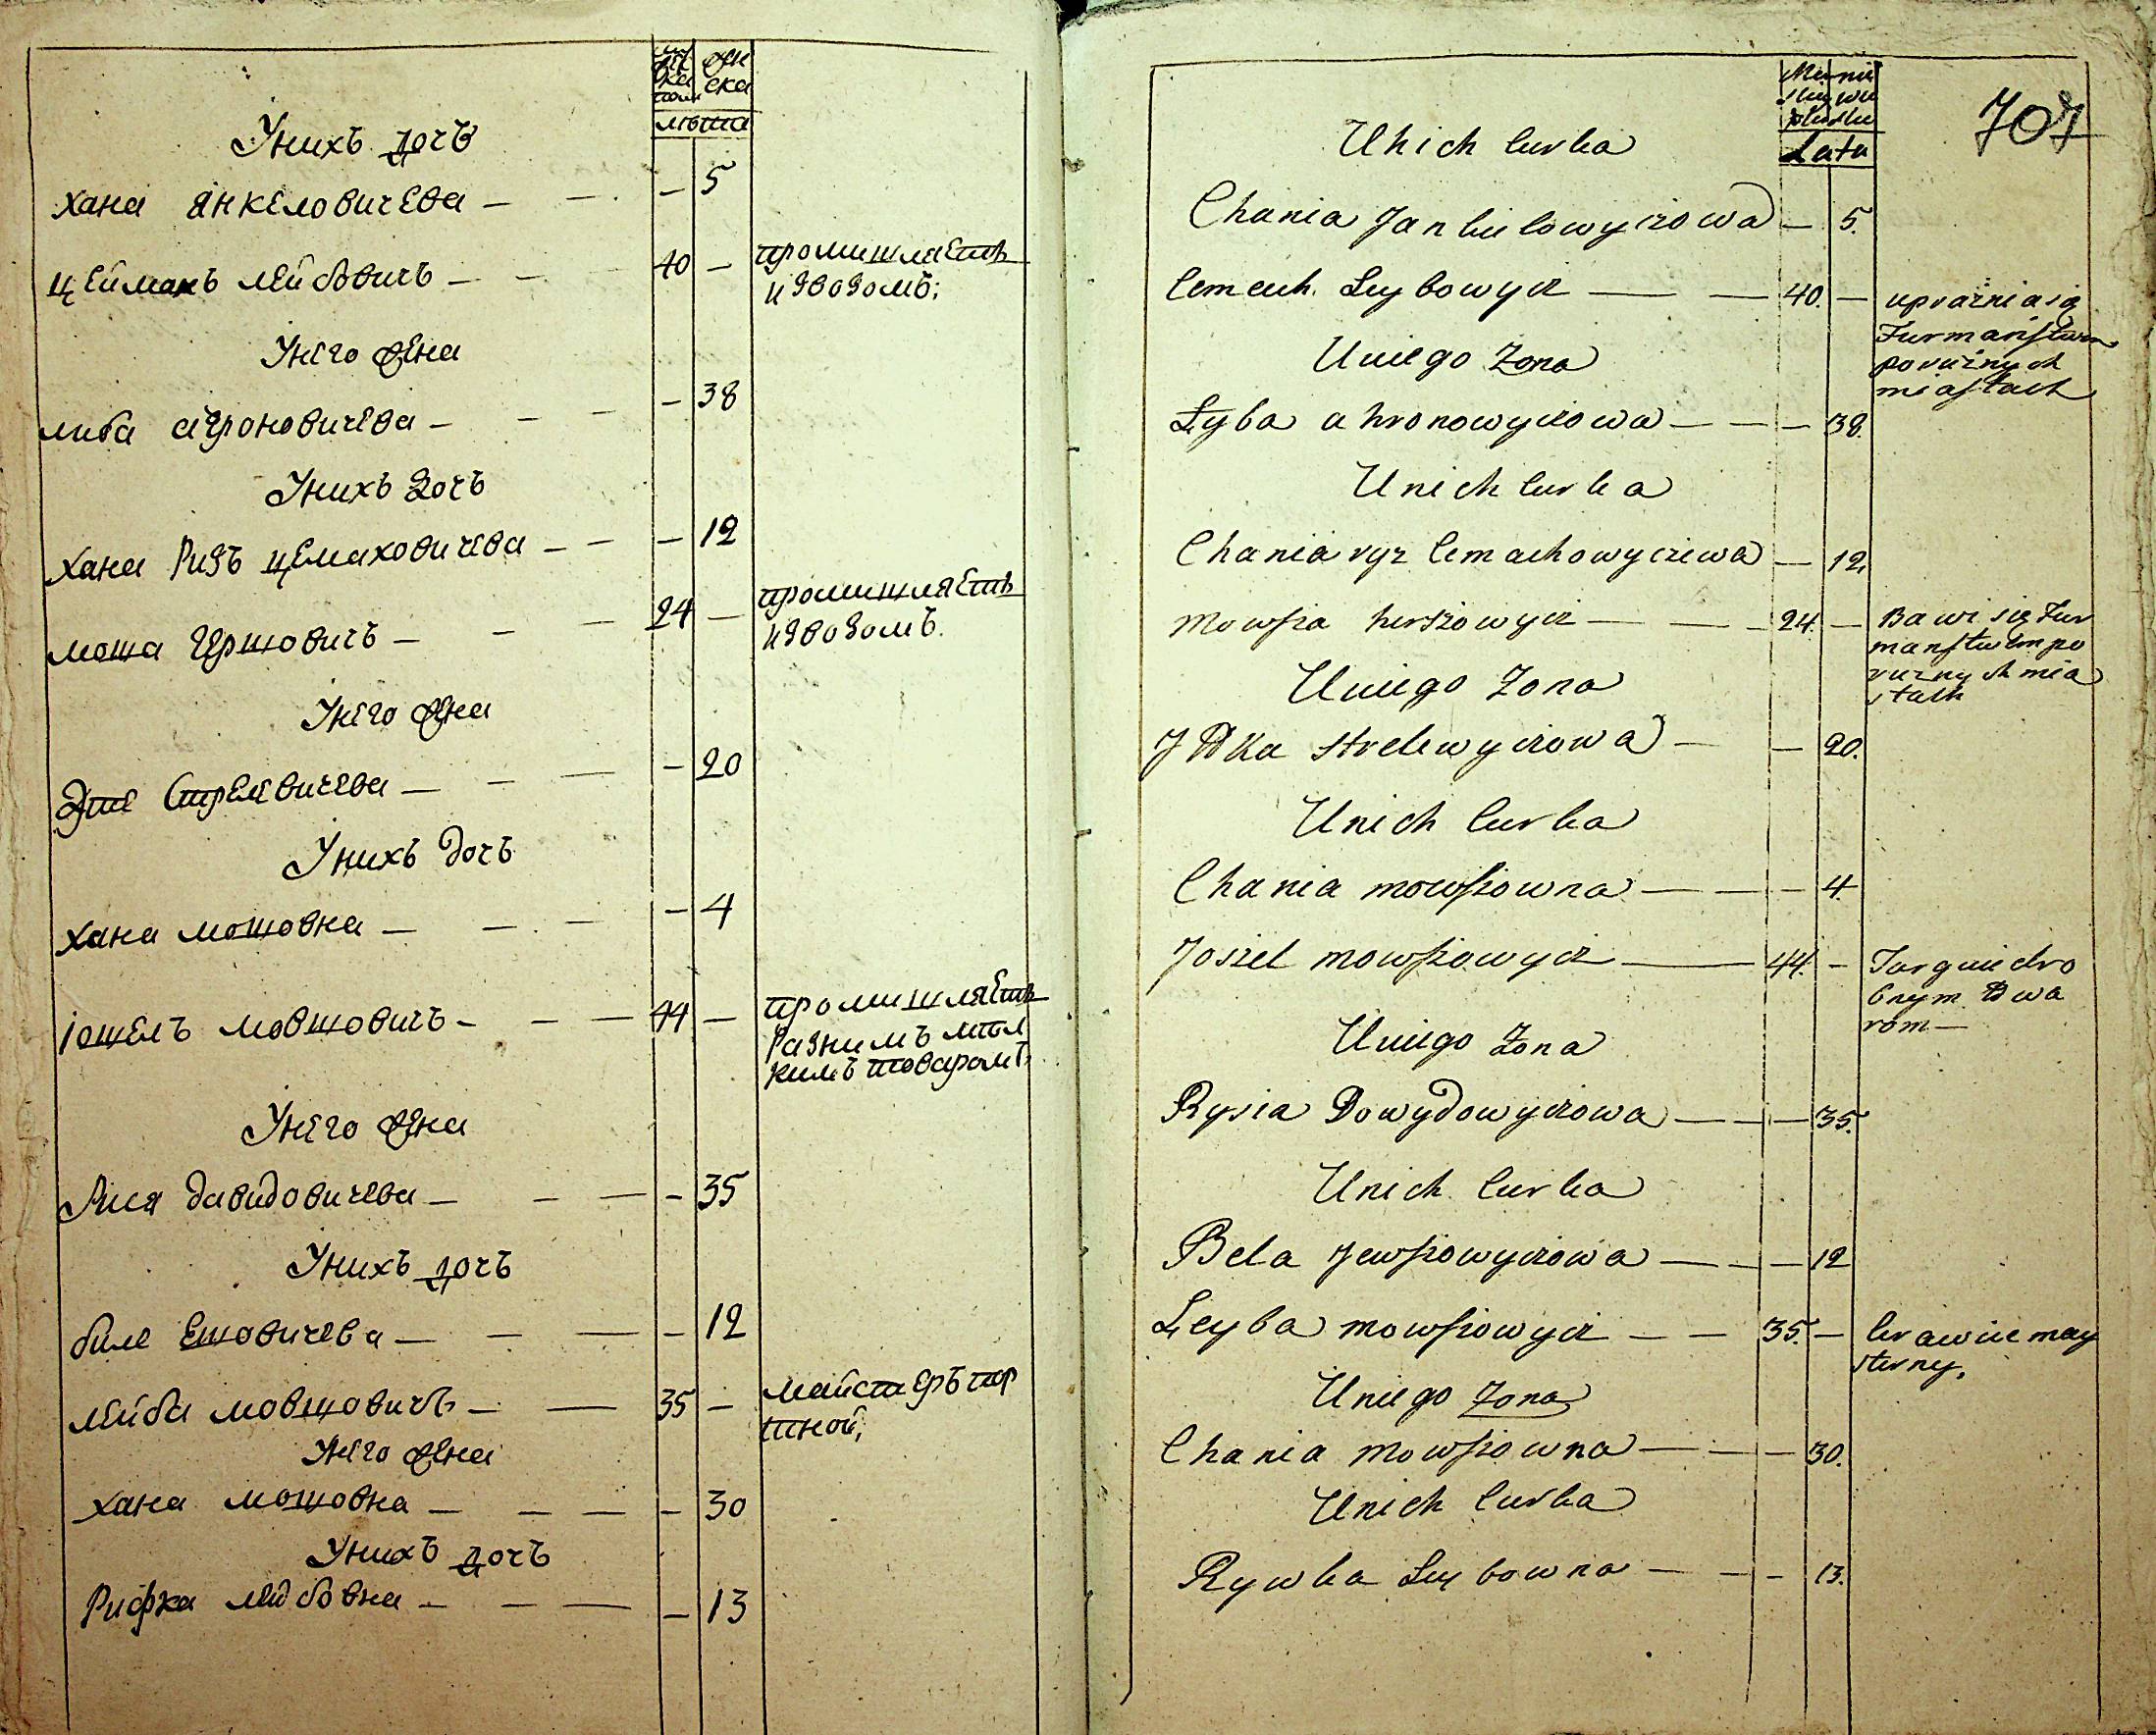 лѣта
У нихъ дочь
Хана Янкеловичева — — — 5
Цейманъ Лейбовичъ — — 40 — промишляетъ
извозомъ;
У него жена
Либа Агроновичева — — — — 38
У нихъ дочь
Хана Ризъ Цемаховичева — — — 12
Моша Гершовичъ — — — 24 — промишляетъ
извозомъ.
У него жена
Эте Стрелевичева — — — — 20
У нихъ дочь
Хана Мошовна — — — — 4
Іошелъ Мовшовичъ — — — 44 — промишляетъ
разнимъ мѣл
кимъ товаромъ
У него жена
Рися Давидовичева — — — — 35
У нихъ дочь
Биле Ешовичева — — — — 12
Лейба Мовшовичъ — — 35 — майстеръ пор
тной;
У него жена
Хана Мошовна — — — — 30
У нихъ дочь
Рифка Лейбовна — — — — 13
707
Lata
Unich Curka
Chania Jankielowyczowa — 5.
Cemeuh. Leybowycz — — 40. — uprażnia się
Furmaństwem
po rużnych
miastach
Uniego Żona
Łyba ahronowyczowa — — — 38.
Unich Curka
Chania ryz Cemachowyczewa — 12.
Mowsza herszowycz — — — 24. — Bawi się Fur
manstwem po
rużnych mia
stach
Uniego Zona
Strelewyczowa — — 20.
Unich Curka
Chania mowszowna — — — 4.
Joszel mowszowycz — 44. — Targuie dro
bnym Towa
rom —
Uniego Żona
Rysia Dowydowyczowa — — — 35.
Unich Curka
Bela Jewszowyczowa — — — 12
Leyba mowszowycz — — 35. — krawiec may
sterny,
Uniego Żona
Chania Mowszowna — — — 30.
Unich Curka
Rywka Leybowna — — — 13.